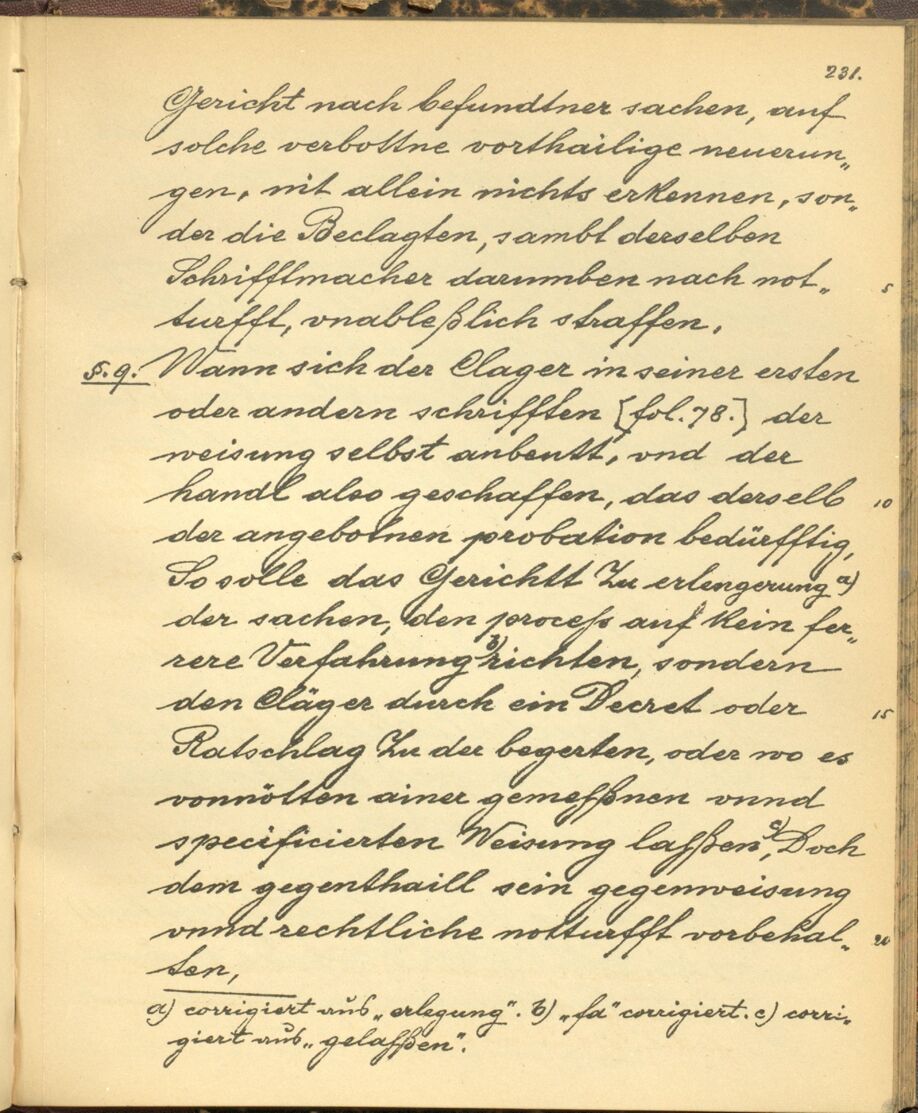 231.
Gericht nach befundtner sachen, auf
solche verbottne vorthailige neuerun„
gen, nit allein nichts erkennen, son„
der die Beclagten, sambt derselben
Schrifftmacher darumben nach not„ 5
turfft, vnableßlich straffen.
§. 9. Wann sich der Clager in seiner ersten
oder andern schrifften [fol. 78.] der
weisung selbst anbeutt, vnd der
handl also geschaffen, das derselb 10
der angebotnen probation bedürfftig,
So solle das Gerichtt Zu erlengerung a)
der sachen, den process auf kein fer„
rere Verfahrung b) richten, sondern
den Cläger durch ein Decret oder 15
Ratschlag Zu der begerten, oder wo es
vonnötten ainer gemeßßnen vnnd
specificierten Weisung laßßen c), Doch
dem gegenthaill sein gegenweisung
vnnd rechtliche notturfft vorbehal„ 20
ten,
a) corrigiert aus „erlegung“. b) „fa“ corrigiert. c) corri„
giert aus „gelaßßen“.